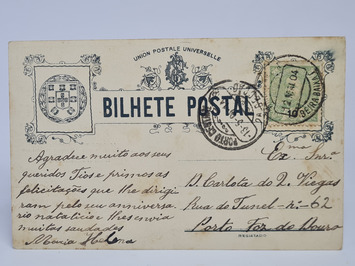 UNION POSTALE UNIVERSELLE
BILHETE POSTAL
Agradece muito aos seus
queridos Tios e primos as
felicitações que lhe dirigi-
ram pelo seu anniversa-
rio natalicio e lhes envia
muitas saudades
Maria Helena
Exma Snra
D. Carlota do R. Viegas
Rua do Tunel-nº-62
Porto Foz do Douro
PORTO CENTRAL